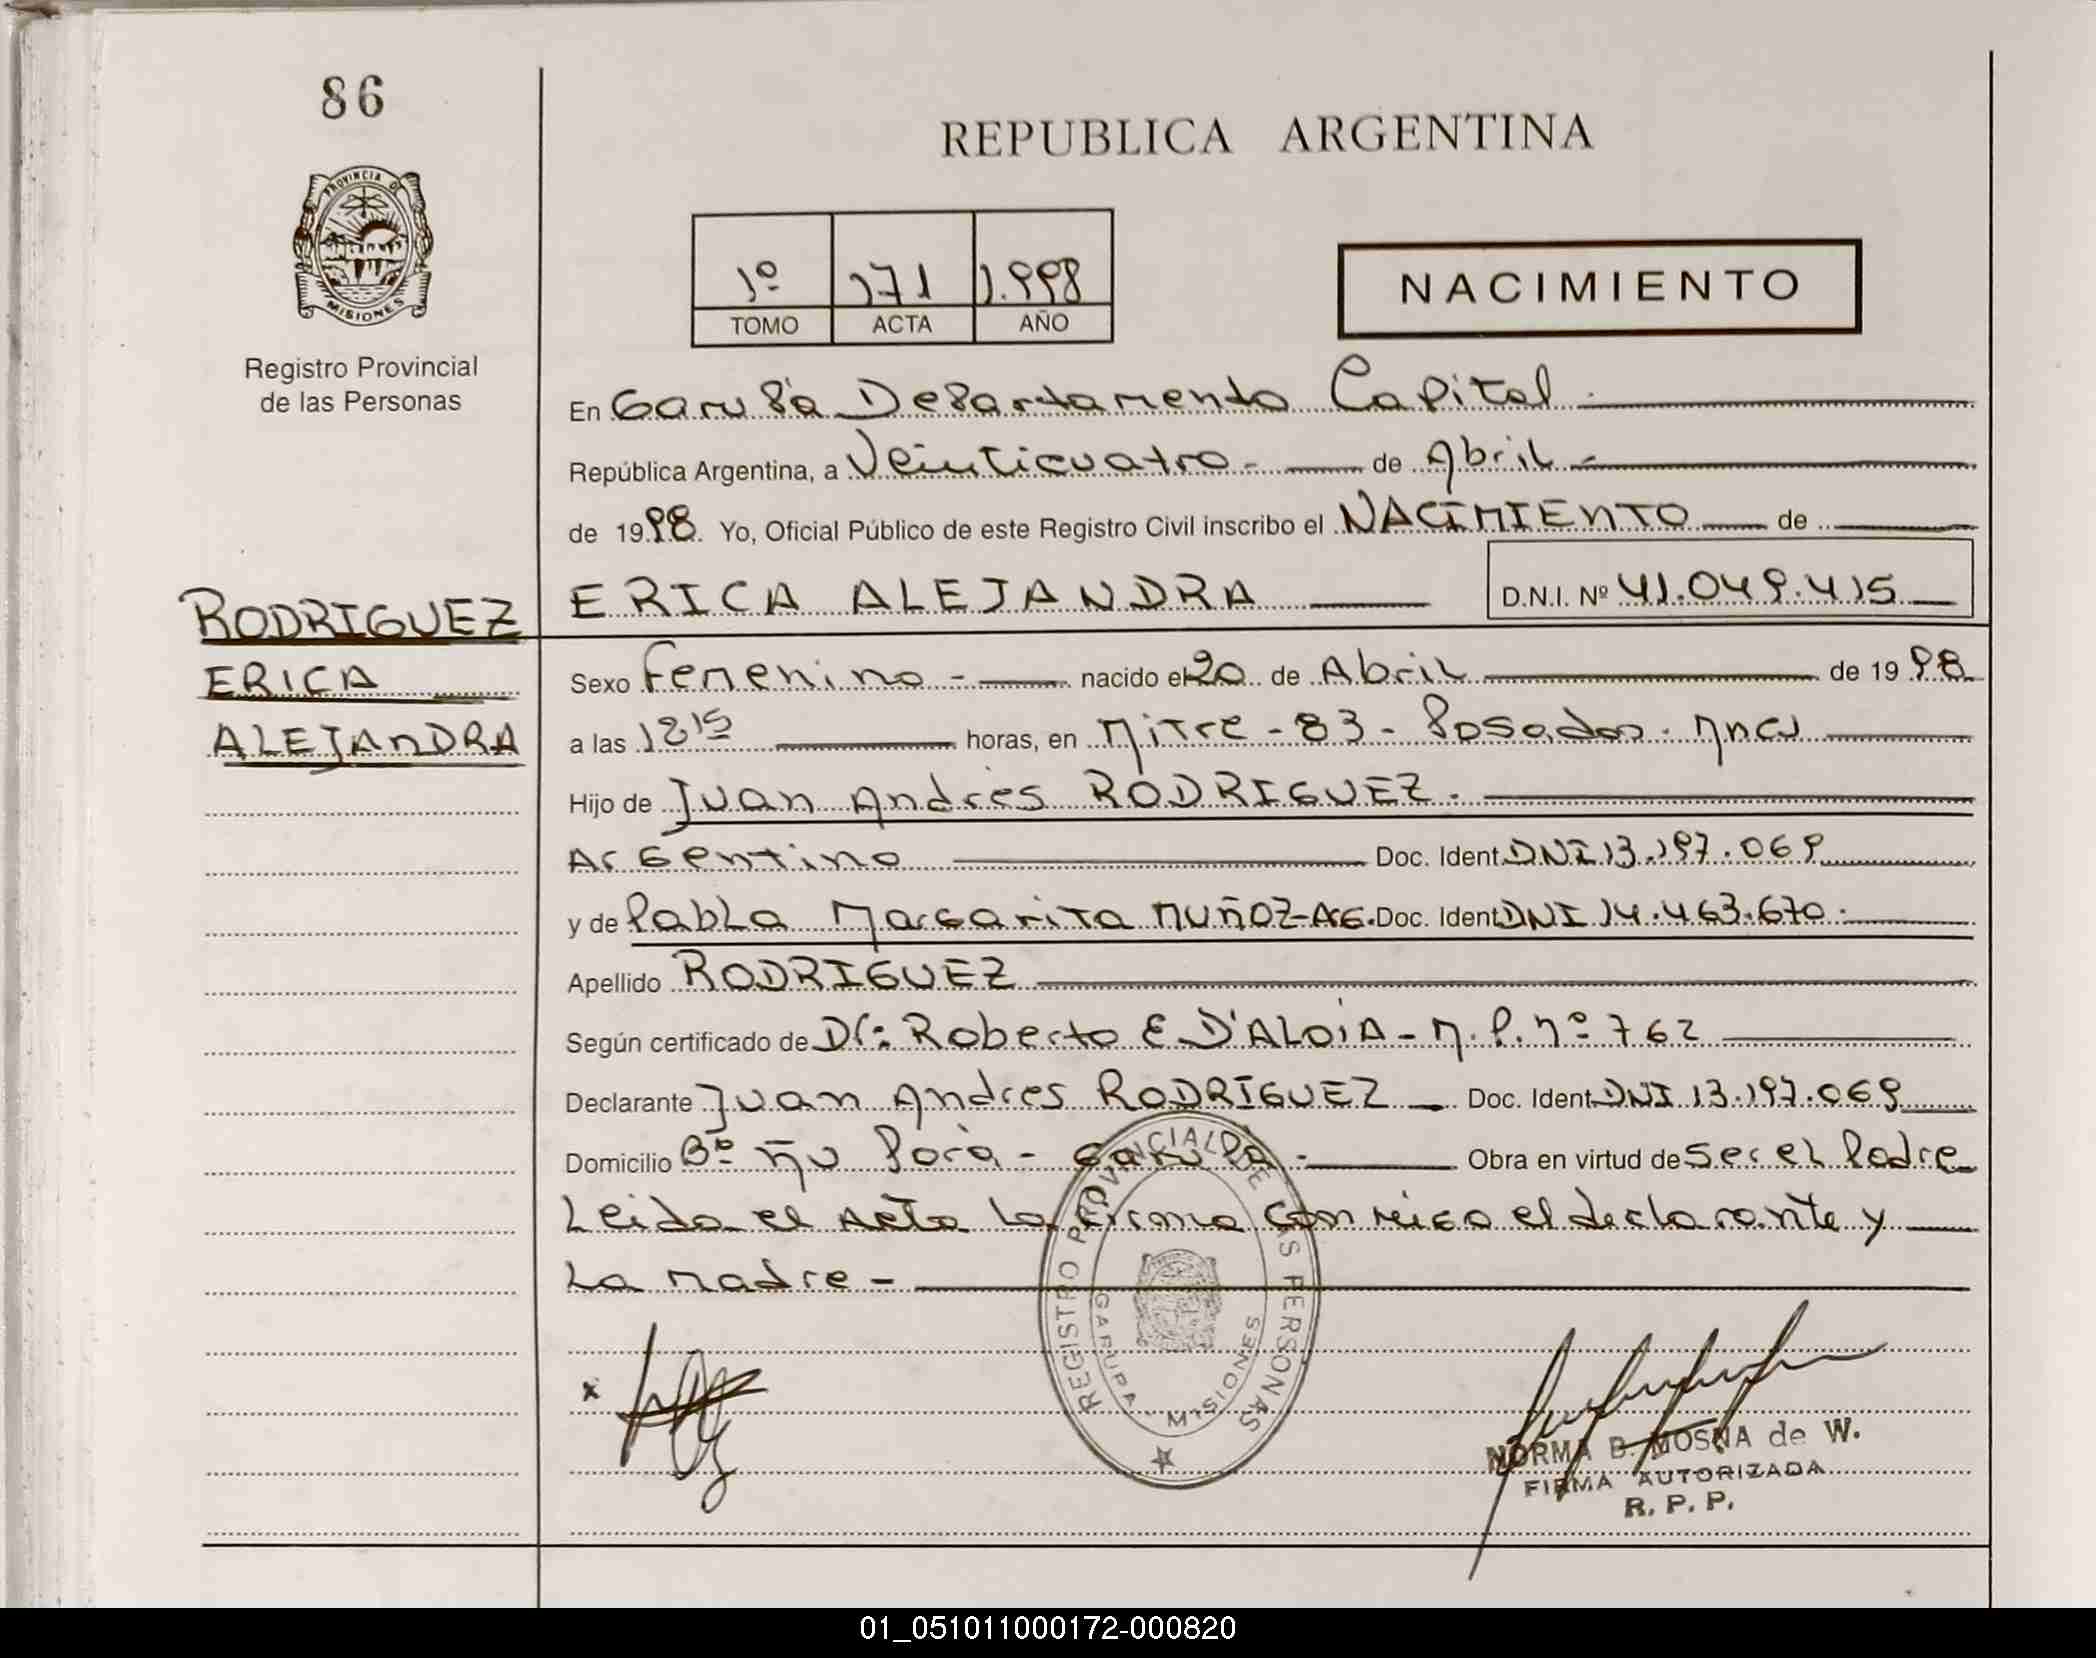 86
REPUBLICA ARGENTINA
PROVINCIA DE
MISIONES
Registro Provincial
de las Personas
1º 171 1.998
TOMO ACTA AÑO
NACIMIENTO
En Garupá Departamento Capital.
República Argentina, a Veinticuatro - de Abril -
de 1998. Yo, Oficial Público de este Registro Civil inscribo el NACIMIENTO de
ERICA ALEJANDRA D.N.I. Nº 41.049.415
RODRIGUEZ
ERICA
ALEJANDRA
Sexo Femenino - nacido el 20 de Abril de 1998
a las 1815 horas, en Mitre - 83 - Posadas - Mnes
Hijo de Juan Andrés RODRIGUEZ.
Argentino Doc. Ident. DNI 13.197.069
y de Pabla Margarita MUÑOZ-AG. Doc. Ident DNI 14.463.670.
Apellido RODRIGUEZ
Según certificado de Dr: Roberto E D'ALOIA - M.P. Nº 762
Declarante Juan Andres RODRÍGUEZ Doc. Ident DNI 13.197.069
Domicilio Bº Ñu Porá - Garupá - Obra en virtud de Ser el Padre
Leida el Acta la firma conmigo el declarante y
La madre -
x
REGISTRO PROVINCIAL DE LAS PERSONAS
GARUPA - MISIONES
NORMA B. MOSNA de W.
FIRMA AUTORIZADA
R. P. P.
01_051011000172-000820